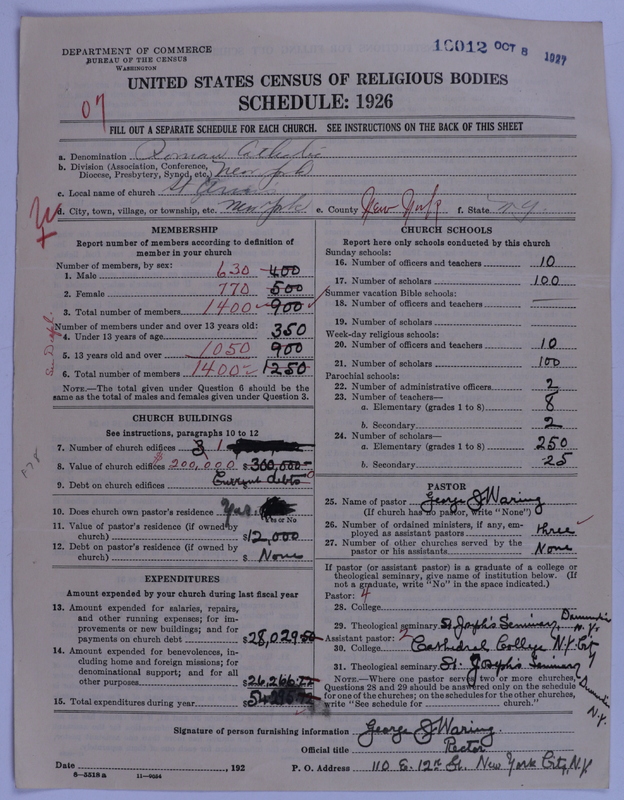 DEPARTMENT OF COMMERCE
BUREAU OF THE CENSUS
WASHINGTON
10012 OCT 8 1927
UNITED STATES CENSUS OF RELIGIOUS BODIES
SCHEDULE: 1926
07
FILL OUT A SEPARATE SCHEDULE FOR EACH CHURCH. SEE INSTRUCTIONS ON THE BACK OF THIS SHEET
a. Denomination Roman Catholic
b. Division (Association, Conference, Diocese, Presbytery, Synod, etc. New York
c. Local name of church St
d. City, town, village, or township, etc. New York e. County New York f. State N.Y.
MEMBERSHIP
Report number of members according to definition of member in your church
Number of members, by sex:
1. Male 630 400
2. Female 770 500
3. Total number of members 1400 900
Number of members under and over 13 years old:
4. Under 13 years of age 350
5. 13 years old and over 1050 900
6. Total number of members 1400 1250
NOTE.—The total given under Question 6 should be the same as the total of males and females given under Question 3.
CHURCH BUILDINGS
See instructions, paragraphs 10 to 12
7. Number of church edifices 1
8. Value of church edifices $200,000 $300,000
9. Debt on church edifices Current debts
10. Does church own pastor's residence? Yes
Yes or No
11. Value of pastor's residence (if owned by church) $12,000
12. Debt on pastor's residence (if owned by church) $ None
EXPENDITURES
Amount expended by your church during last fiscal year
13. Amount expended for salaries, repairs, and other running expenses; for improvements or new buildings; and for payments on church debt $28,029.00
14. Amount expended for benevolences, including home and foreign missions; for denominational support; and for all other purposes $26,266.77
15. Total expenditures during year $
CHURCH SCHOOLS
Report here only schools conducted by this church
Sunday schools:
16. Number of officers and teachers 10
17. Number of scholars 100
Summer vacation Bible schools:
18. Number of officers and teachers
19. Number of scholars
Week-day religious schools:
20. Number of officers and teachers 10
21. Number of scholars 100
Parochial schools:
22. Number of administrative officers 2
23. Number of teachers—
a. Elementary (grades 1 to 8) 8
b. Secondary 2
24. Number of scholars—
a. Elementary (grades 1 to 8) 250
b. Secondary 25
PASTOR
25. Name of pastor George J Waring
(If church has no pastor, write "None")
26. Number of ordained ministers, if any, employed as assistant pastors three
27. Number of other churches served by the pastor or his assistants None
If pastor (or assistant pastor) is a graduate of a college or theological seminary, give name of institution below. (If not a graduate, write "No" in the space indicated.)
Pastor: 4
28. College
29. Theological seminary St Joseph's Seminary Dunwoodie N.Y.
Assistant pastor: 2
30. College Cathedral College N.Y. City
31. Theological seminary St. Joseph's Seminary Dunwoodie N.Y.
NOTE.—Where one pastor served two or more churches, Questions 28 and 29 should be answered only on the schedule for one of the churches; on the schedules for the other churches, write "See schedule for church."
Signature of person furnishing information George J Waring
Official title Rector
Date , 192 P. O. Address 110 E. 12th St. New York City, N.Y.
8—5518 a 11—9064